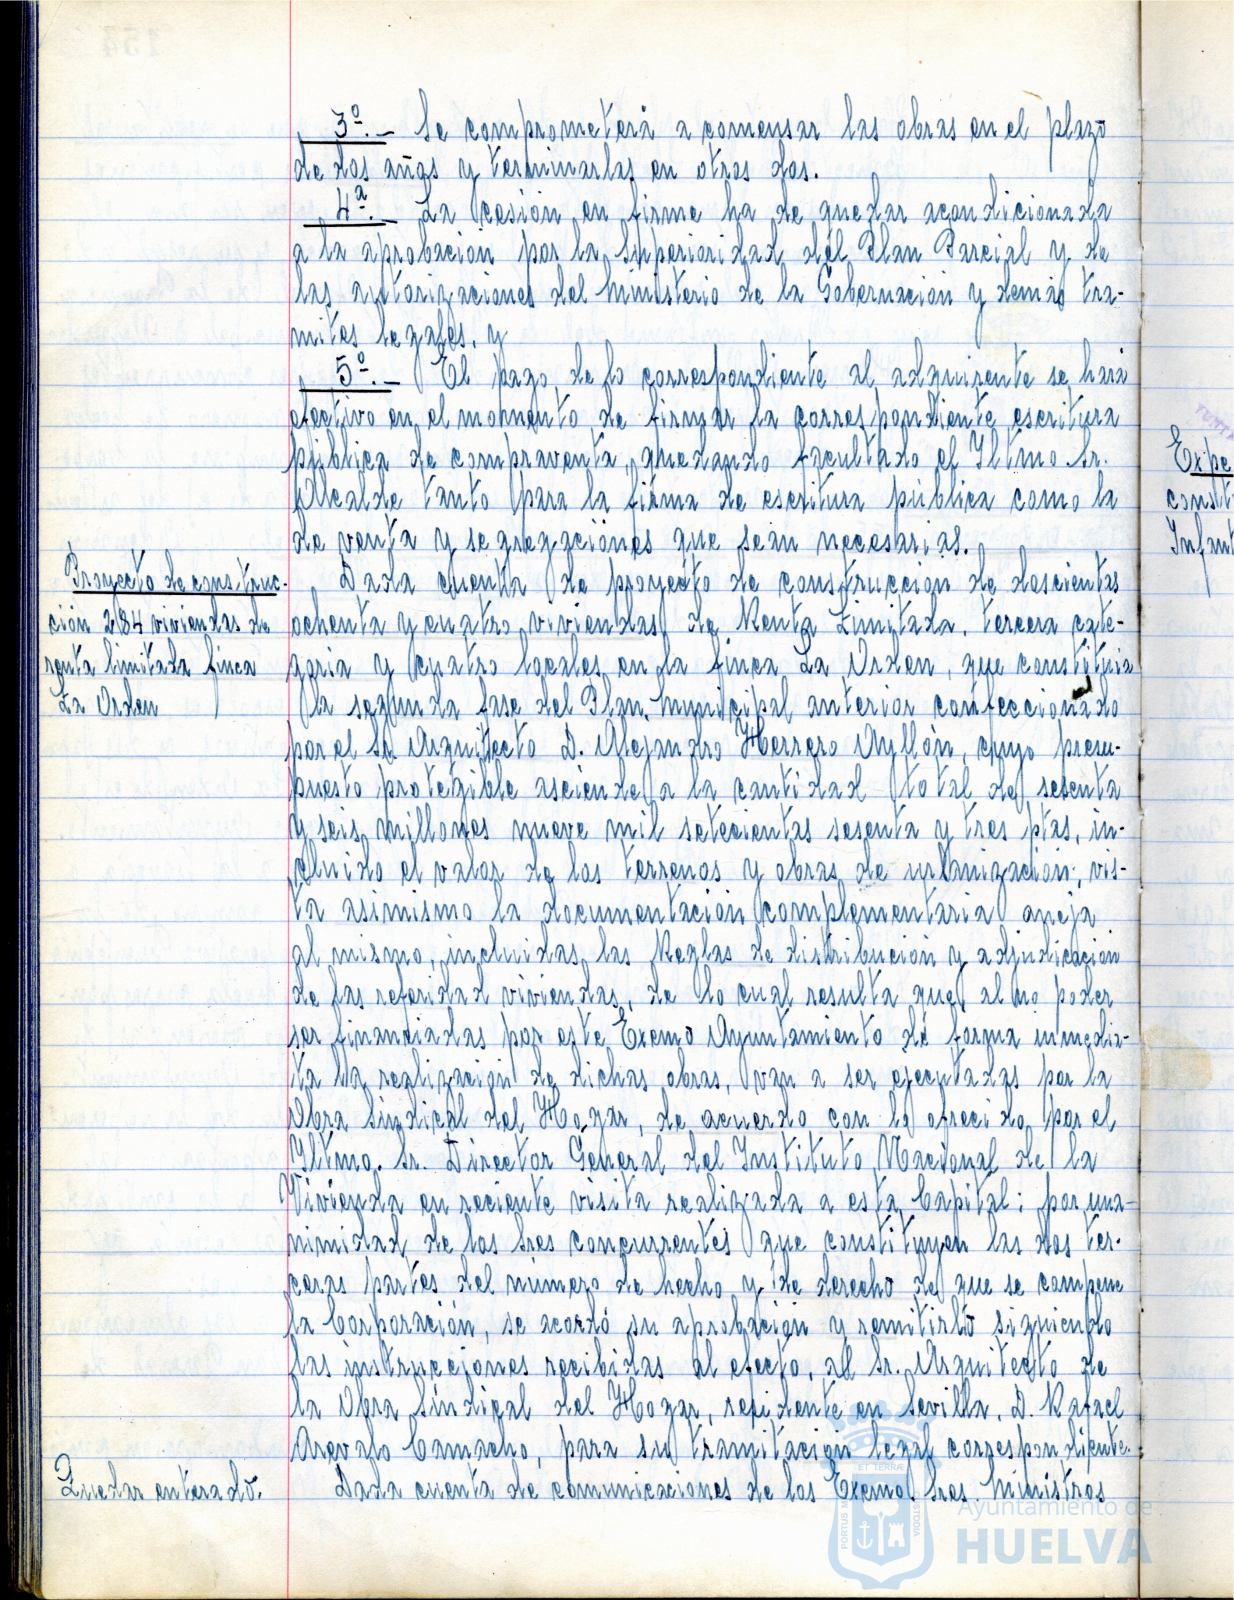 3º.- Se comprometerá a comenzar las obras en el plazo
de dos años y terminarlas en otros dos.
4ª.- La cesión en firme ha de quedar acondicionada
a la aprobación por la Superioridad del Plan Parcial y de
las autorizaciones del Ministerio de la Gobernación y demás trá-
mites legales, y
5º.- El pago de lo correspondiente al adquirente se hará
efectivo en el momento de firmar la correspondiente escritura
pública de compraventa, quedando facultado el Iltmo. Sr.
Alcalde tanto para la firma de escritura pública como la
de venta y segregaciónes que sean necesarias.
Proyecto de construc-
ción 284 viviendas de
renta limitada finca
La Orden
Dada cuenta de proyecto de construcción de doscientas
ochenta y cuatro viviendas de Renta Limitada, tercera cate-
goria y cuatro locales en la finca La Orden, que constituia
la segunda fase del Plan Municipal anterior confeccionado
por el Sr. Arquitecto D. Alejandro Herrero Ayllón, cuyo presu-
puesto protegible asciende a la cantidad total de sesenta
y seis millones nueve mil setecientas sesenta y tres ptas, in-
cluido el valor de los terrenos y obras de urbanización; vis-
ta asimismo la documentación complementaria aneja
al mismo, incluidas las Reglas de distribución y adjudicación
de las referidad viviendas, de lo cual resulta que al no poder
ser financiadas por este Excmo Ayuntamiento de forma inmedia-
ta la realización de dichas obras, van a ser ejecutadas por la
Obra Sindical del Hogar, de acuerdo con lo ofrecido por el
Iltmo. Sr. Director General del Instituto Nacional de la
Vivienda en reciente visita realizada a esta Capital; por una-
nimidad de los Sres concurrentes que constituyen las dos ter-
ceras partes del número de hecho y de derecho de que se compone
la Corporación, se acordó su aprobación y remitirlo siguiendo
las instrucciones recibidas al efecto, al Sr. Arquitecto de
la Obra Sindical del Hogar, residente en Sevilla, D. Rafael
Arevalo Camacho, para su tramitación legal correspondiente.
Quedar enterado.
Dada cuenta de comunicaciones de los Excmos. Sres Ministros
Expe
const
Infant
ET TERRÆ
PORTUS M
CUSTODIA
Ayuntamiento de
HUELVA